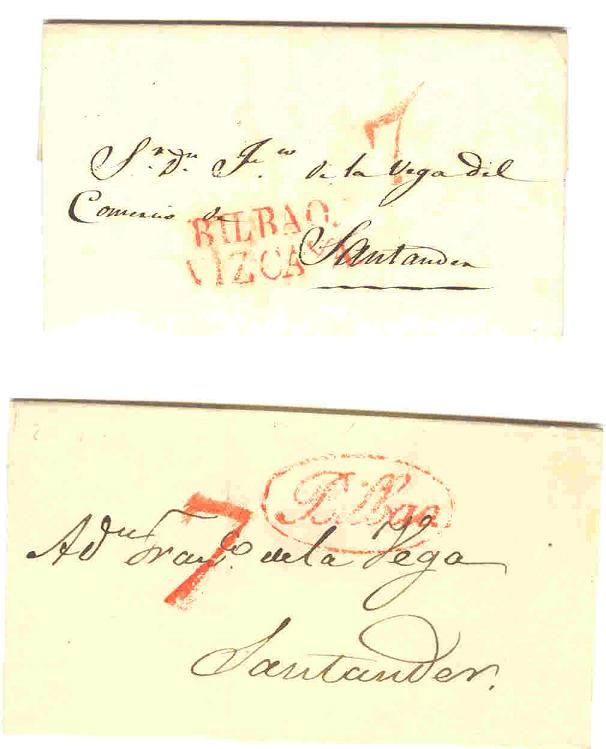 7
Sr. Dn. Fco. de la Vega del
Comercio de
BILBAO.
VIZCAYA
Santander
Bilbao
7
A dn. Franco. de la Vega
Santander.